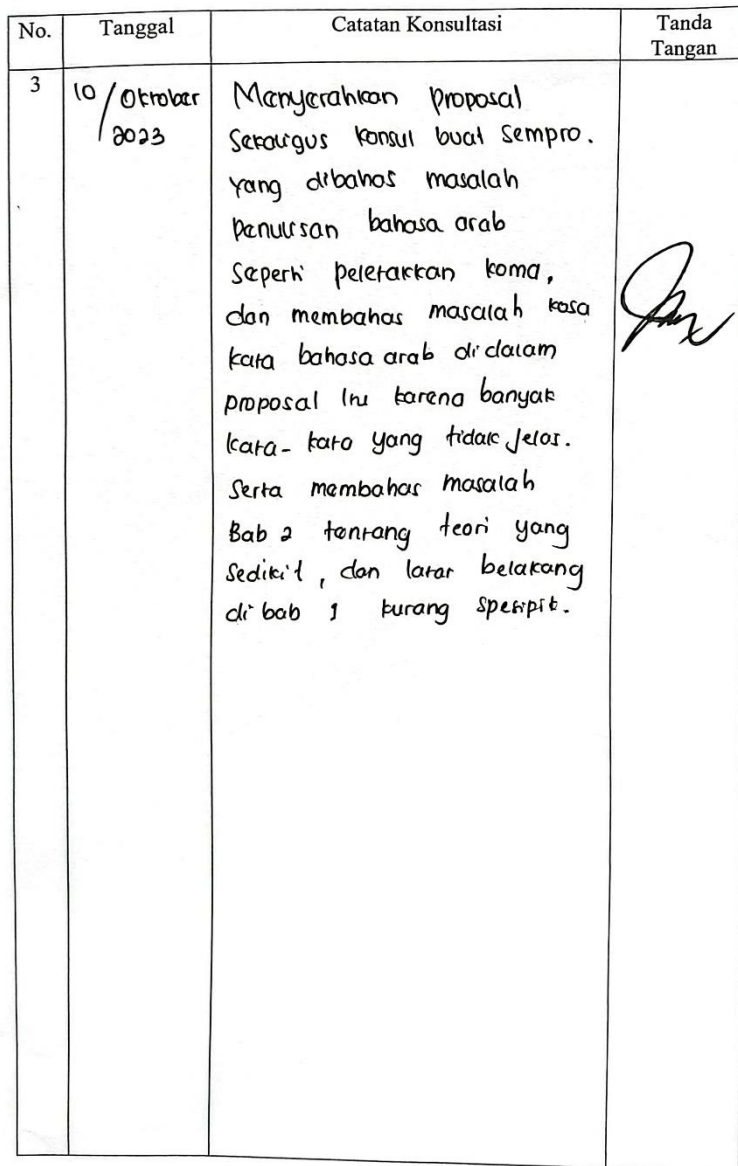 No. Tanggal Catatan Konsultasi Tanda Tangan
3 10/Oktober 2023 Menyerahkan proposal
Sekaligus konsul buat Sempro.
yang dibahas masalah
penulisan bahasa arab
Seperti peletakkan koma,
dan membahas masalah kosa
kata bahasa arab didalam
proposal Ini karena banyak
kata-kata yang tidak Jelas.
Serta membahas masalah
Bab 2 tentang teori yang
Sedikit, dan latar belakang
di bab 1 kurang spesipik.